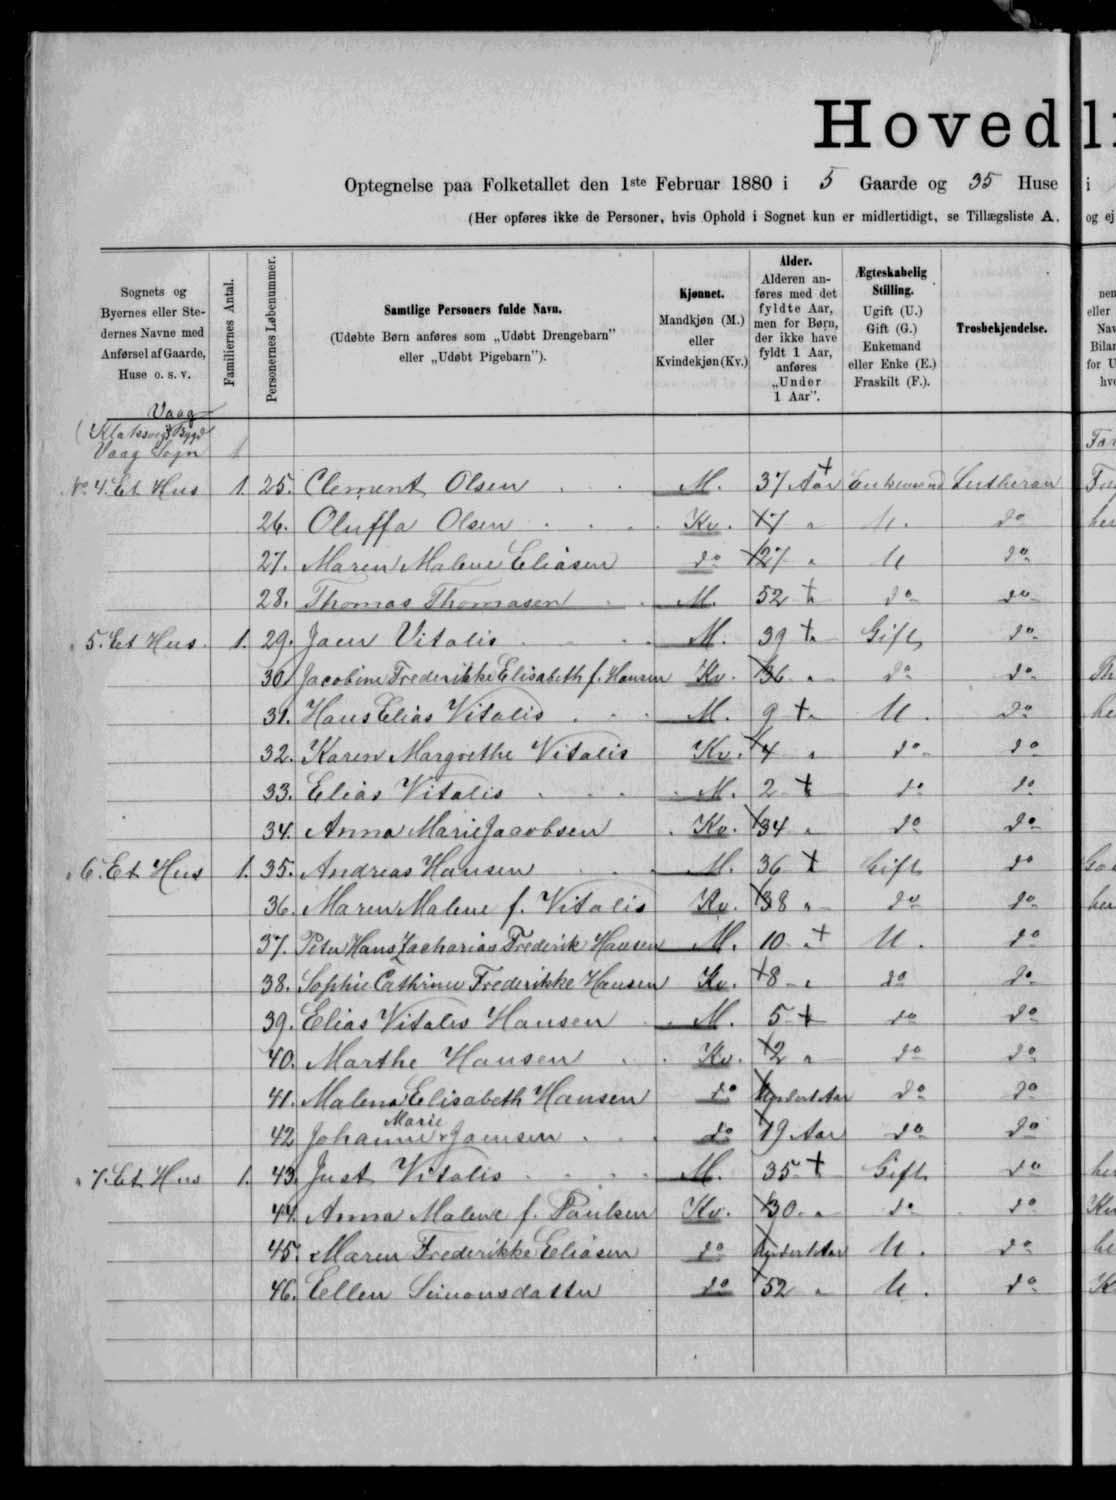 Hovedli
Optegnelse paa Folketallet den 1ste Februar 1880 i 5 Gaarde og 35 Huse i
(Her opføres ikke de Personer, hvis Ophold i Sognet kun er midlertidigt, se Tillægsliste A, og ej
Sognets og Byernes eller Stedernes Navne med Anførsel af Gaarde, Huse o. s. v.
Familiernes Antal.
Personernes Løbenummer.
Samtlige Personers fulde Navn.
(Udøbte Børn anføres som „Udøbt Drengebarn" eller „Udøbt Pigebarn").
Kjønnet.
Mandkjøn (M.) eller Kvindekjøn (Kv.)
Alder.
Alderen anføres med det fyldte Aar, men for Børn, der ikke have fyldt 1 Aar, anføres „Under 1 Aar".
Ægteskabelig Stilling.
Ugift (U.) Gift (G.) Enkemand eller Enke (E.) Fraskilt (F.).
Trosbekjendelse.
Vaag
(Klaksvigs Bygd
Vaag Sogn 1
No 4. Et Hus 1. 25. Clement Olsen M. 37 Aar Enkemand Lutheran
26. Oluffa Olsen Kv. 7 " U. do
27. Maren Malene Eliasen do 27 " U do
28. Thomas Thomasen M. 52 " do do
" 5. Et Hus. 1. 29. Joen Vitalis M. 39 " Gift do
30. Jacobine Frederikke Elisabeth f. Hansen Kv. 36 " do do
31. Hans Elias Vitalis M. 9 " U. do
32. Karen Margrethe Vitalis Kv. 4 " do do
33. Elias Vitalis M. 2 " do do
34. Anna Marie Jacobsen Kv. 34 " do do
" 6. Et Hus 1. 35. Andreas Hansen M. 36 Gift do
36. Maren Malene f. Vitalis Kv. 38 " do do
37. Peter Hans Zacharias Frederik Hansen M. 10 " U. do
38. Sophie Cathrine Frederikke Hansen Kv. 8 " do do
39. Elias Vitalis Hansen M. 5 do do
40. Marthe Hansen Kv. 2 " do do
41. Malena Elisabeth Hansen do Under 1 Aar do do
42 Johanne Marie Joensen do 19 Aar do do
" 7. Et Hus 1. 43. Just Vitalis M. 35 Gift do
44. Anna Malene f. Paulsen Kv. 30 " do do
45. Maren Frederikke Eliasen do Under 1 Aar U. do
46. Ellen Simonsdatter do 52 " U. do